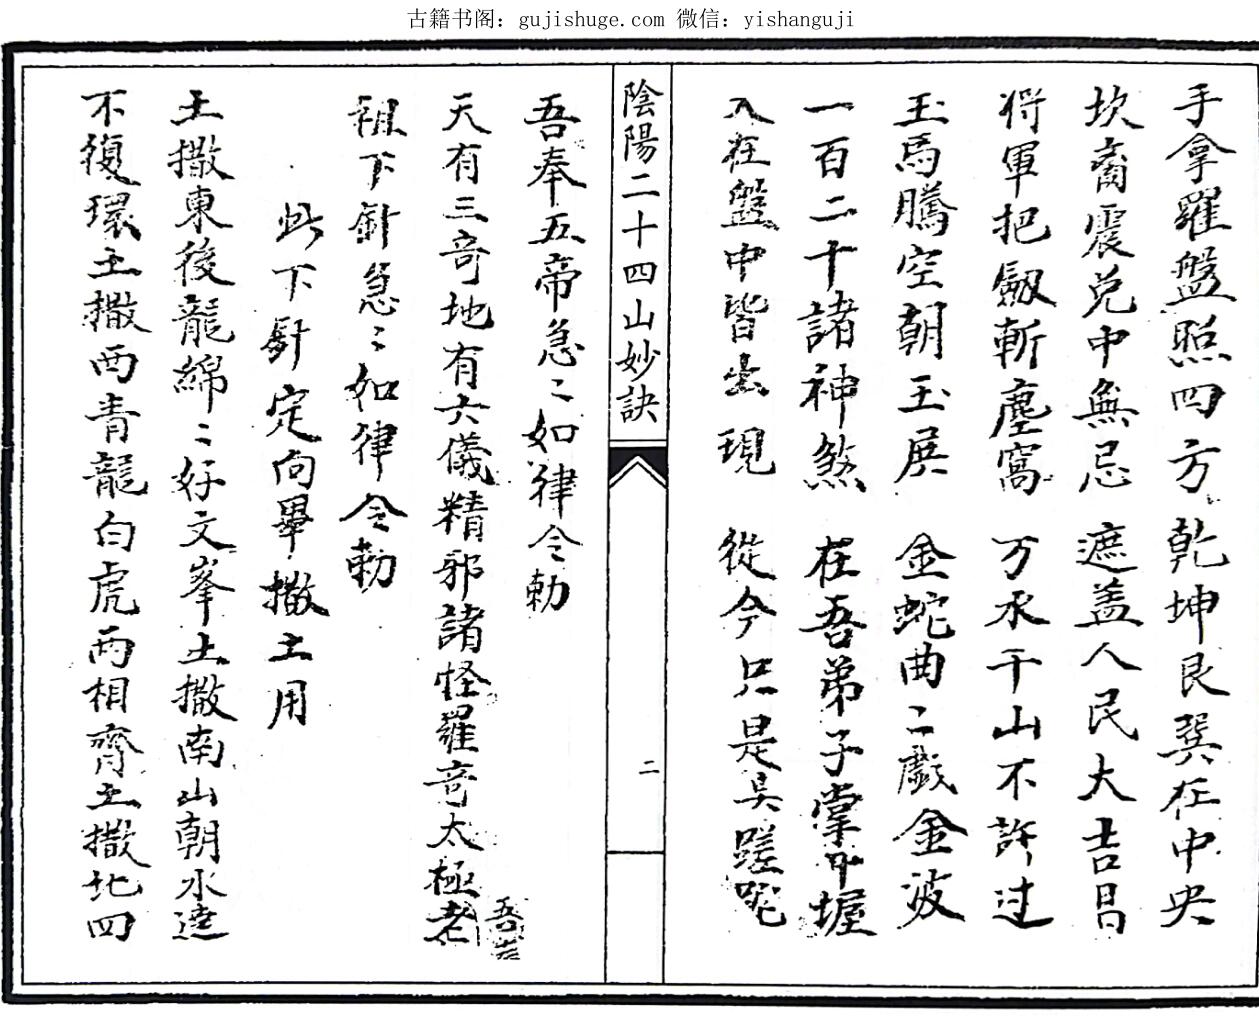 古籍书阁：gujishuge.com 微信：yishanguji
手拿羅盤照四方 乾坤艮巽在中央
坎离震兑中無忌 遮盖人民大吉昌
将軍把劔斬塵窩 万水千山不許过
玉馬騰空朝玉展 金蛇曲〻戲金波
一百二十諸神煞 在吾弟子掌中握
入在盤中皆出現 從今只是莫蹉跎
陰陽二十四山妙訣
二
吾奉五帝急〻如律令勅
天有三奇地有六儀精邪諸怪羅奇太極老
吾
祖下針急〻如律令勅
此下針定向畢撒土用
土撒東後龍綿〻好文峯土撒南山朝水遶
不復環土撒西青龍白虎两相齊土撒北四